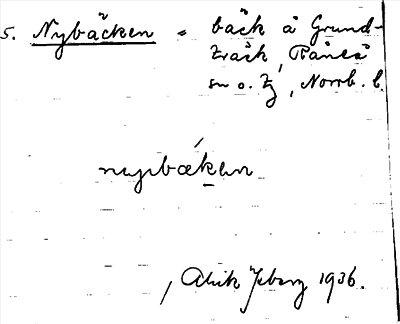 5. Nybäcken = bäck å Grund-
träsk, Råneå
sn o. tg, Norrb. l.
nyʹbækɛn
Alrik Isberg 1936.